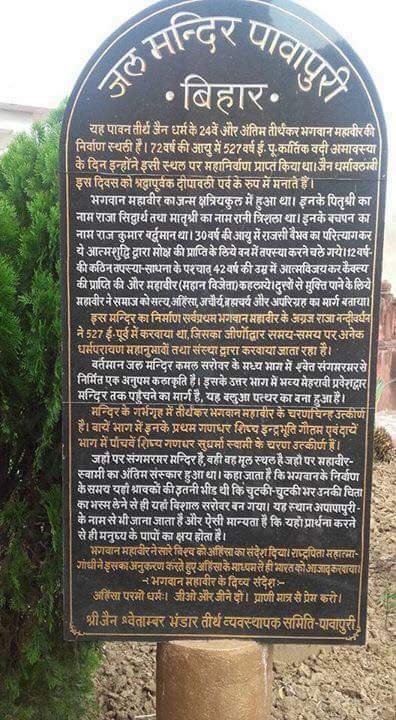 जल मन्दिर पावापुरी
• बिहार •
यह पावन तीर्थ जैन धर्म के 24वें और अंतिम तीर्थंकर भगवान महावीर की
निर्वाण स्थली है। 72वर्ष की आयु में 527 वर्ष ई. पू. कार्तिक वदी अमावस्या
के दिन इन्होंने इसी स्थल पर महानिर्वाण प्राप्त किया था। जैन धर्मावलम्बी
इस दिवस को श्रद्धापूर्वक दीपावली पर्व के रूप में मनाते हैं।
भगवान महावीर का जन्म क्षत्रियकुल में हुआ था। इनके पितृश्री का
नाम राजा सिद्धार्थ तथा मातृश्री का नाम रानी त्रिशला था। इनके बचपन का
नाम राज कुमार बर्द्धमान था। 30वर्ष की आयु में राजसी वैभव का परित्याग कर
ये आत्मशुद्धि द्वारा मोक्ष की प्राप्ति के लिये वन में तपस्या करने चले गये। 12वर्ष-
की कठिन तपस्या-साधना के पश्चात् 42वर्ष की उम्र में आत्मविजय कर कैवल्य
की प्राप्ति की और महावीर (महान विजेता) कहलाये। दुःखों से मुक्ति पाने के लिये
महावीर ने समाज को सत्य, अहिंसा, अचौर्य, ब्रह्मचर्य और अपरिग्रह का मार्ग बताया।
इस मन्दिर का निर्माण सर्वप्रथम भगवान महावीर के अग्रज राजा नन्दीवर्धन
ने 527 ई-पूर्व में करवाया था, जिसका जीर्णोद्धार समय-समय पर अनेक
धर्मपरायण महानुभावों तथा संस्था द्वारा करवाया जाता रहा है।
वर्तमान जल मन्दिर कमल सरोवर के मध्य भाग में श्वेत संगमरमर से
निर्मित एक अनुपम कलाकृति है। इसके उत्तर भाग में भव्य मेहराबी प्रवेशद्वार
मन्दिर तक पहुँचने का मार्ग है, यह बलुआ पत्थर का बना हुआ है।
मन्दिर के गर्भगृह में तीर्थंकर भगवान महावीर के चरणचिन्ह उत्कीर्ण
हैं। बायें भाग में इनके प्रथम गणधर शिष्य इन्द्रभूति गौतम एवं दायें
भाग में पाँचवें शिष्य गणधर सुधर्मा स्वामी के चरण उत्कीर्ण हैं।
जहाँ पर संगमरमर मन्दिर है, वही वह मूल स्थल है जहाँ पर महावीर-
स्वामी का अंतिम संस्कार हुआ था। कहा जाता है कि भगवान के निर्वाण
के समय यहाँ श्रावकों की इतनी भीड थी कि चुटकी-चुटकी भर उनकी चिता
का भस्म लेने से ही यहाँ विशाल सरोवर बन गया। यह स्थान अपापापुरी-
के नाम से भी जाना जाता है और ऐसी मान्यता है कि यहाँ प्रार्थना करने
से ही मनुष्य के पापों का क्षय होता है।
भगवान महावीर ने सारे विश्व को अहिंसा का संदेश दिया। राष्ट्रपिता महात्मा-
गाँधी ने इसका अनुकरण करते हुए अहिंसा के माध्यम से ही भारत को आजाद करवाया।
-: भगवान महावीर के दिव्य संदेश :-
अहिंसा परमो धर्मः। जीओ और जीने दो। प्राणी मात्र से प्रेम करो।
श्री जैन श्वेताम्बर भंडार तीर्थ व्यवस्थापक समिति-पावापुरी